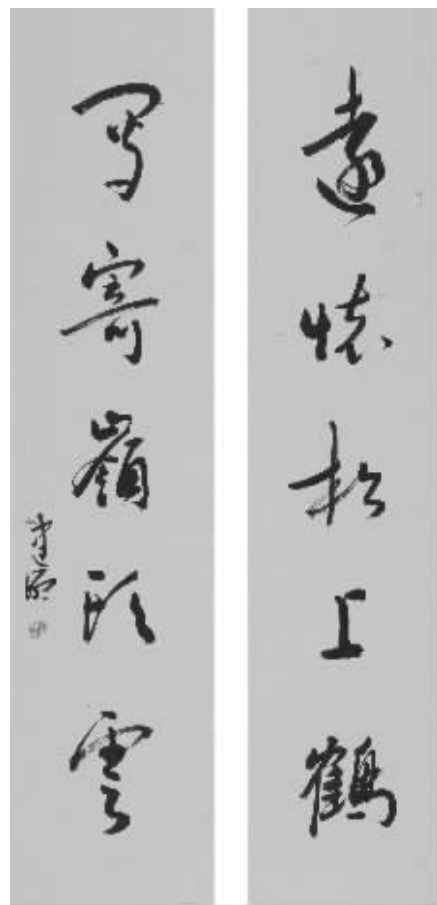 遠懷松上鶴
高寄嶺頭雲